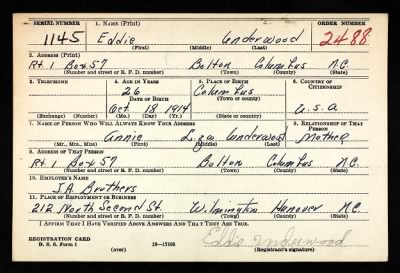 SERIAL NUMBER 1. NAME (Print) ORDER NUMBER
1145 Eddie Underwood 2488
(First) (Middle) (Last)
2. ADDRESS (Print)
Rt. 1 Box 57 Bolton Columbus N.C.
(Number and street or R. F. D. number) (Town) (County) (State)
3. TELEPHONE 4. AGE IN YEARS 5. PLACE OF BIRTH 6. COUNTRY OF CITIZENSHIP
26 Columbus
DATE OF BIRTH (Town or county)
Oct. 18 1914 U.S.A
(Exchange) (Number) (Mo.) (Day) (Yr.) (State or country)
7. NAME OF PERSON WHO WILL ALWAYS KNOW YOUR ADDRESS 8. RELATIONSHIP OF THAT PERSON
Annie Liza Underwood Mother
(Mr., Mrs., Miss) (First) (Middle) (Last)
9. ADDRESS OF THAT PERSON
Rt. 1 Box 57 Bolton Columbus N.C.
(Number and street or R. F. D. number) (Town) (County) (State)
10. EMPLOYER'S NAME
J.A. Brothers
11. PLACE OF EMPLOYMENT OR BUSINESS
212 North Second St. Wilmington Hanover N.C.
(Number and street or R. F. D. number) (Town) (County) (State)
I AFFIRM THAT I HAVE VERIFIED ABOVE ANSWERS AND THAT THEY ARE TRUE.
REGISTRATION CARD Eddie Underwood
D. S. S. Form 1 (over) 16—17105 (Registrant's signature)